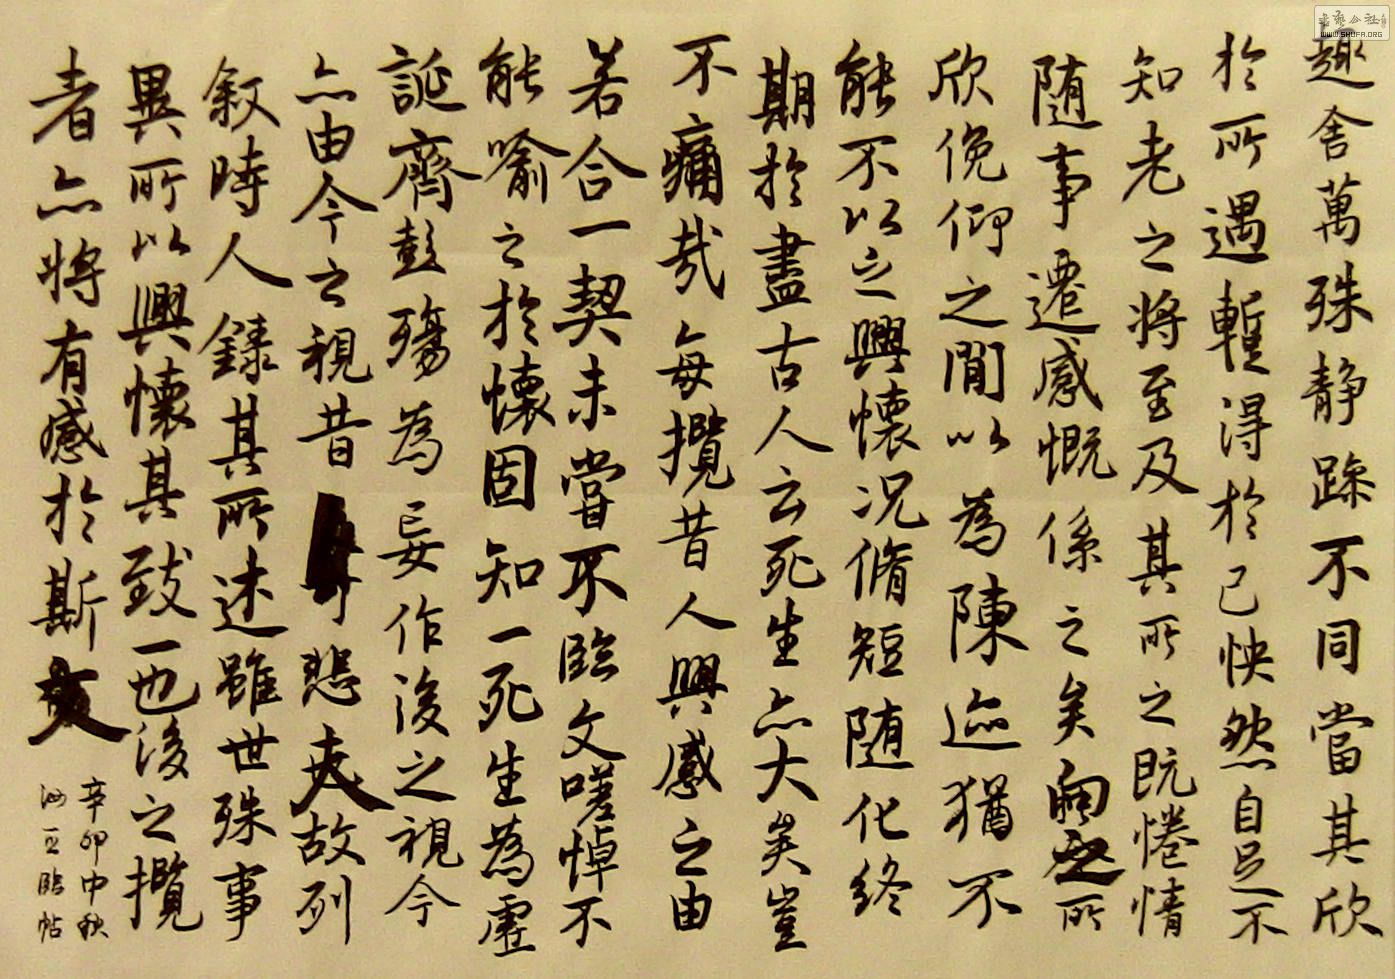 趣舍萬殊静躁不同當其欣
於所遇蹔得於己怏然自足不
知老之將至及其所之既惓情
随事遷感慨係之矣向之所
欣俛仰之閒以為陳迹猶不
能不以之興懷况脩短随化終
期於盡古人云死生亦大矣豈
不痛哉每攬昔人興感之由
若合一契未嘗不臨文嗟悼不
能喻之於懷固知一死生為虛
誕齊彭殤為妄作後之視今
亦由今之視昔悲夫故列
叙時人錄其所述雖世殊事
異所以興懷其致一也後之攬
者亦將有感於斯文
辛卯中秋
臨帖
書藝公社
WWW.SHUFA.ORG